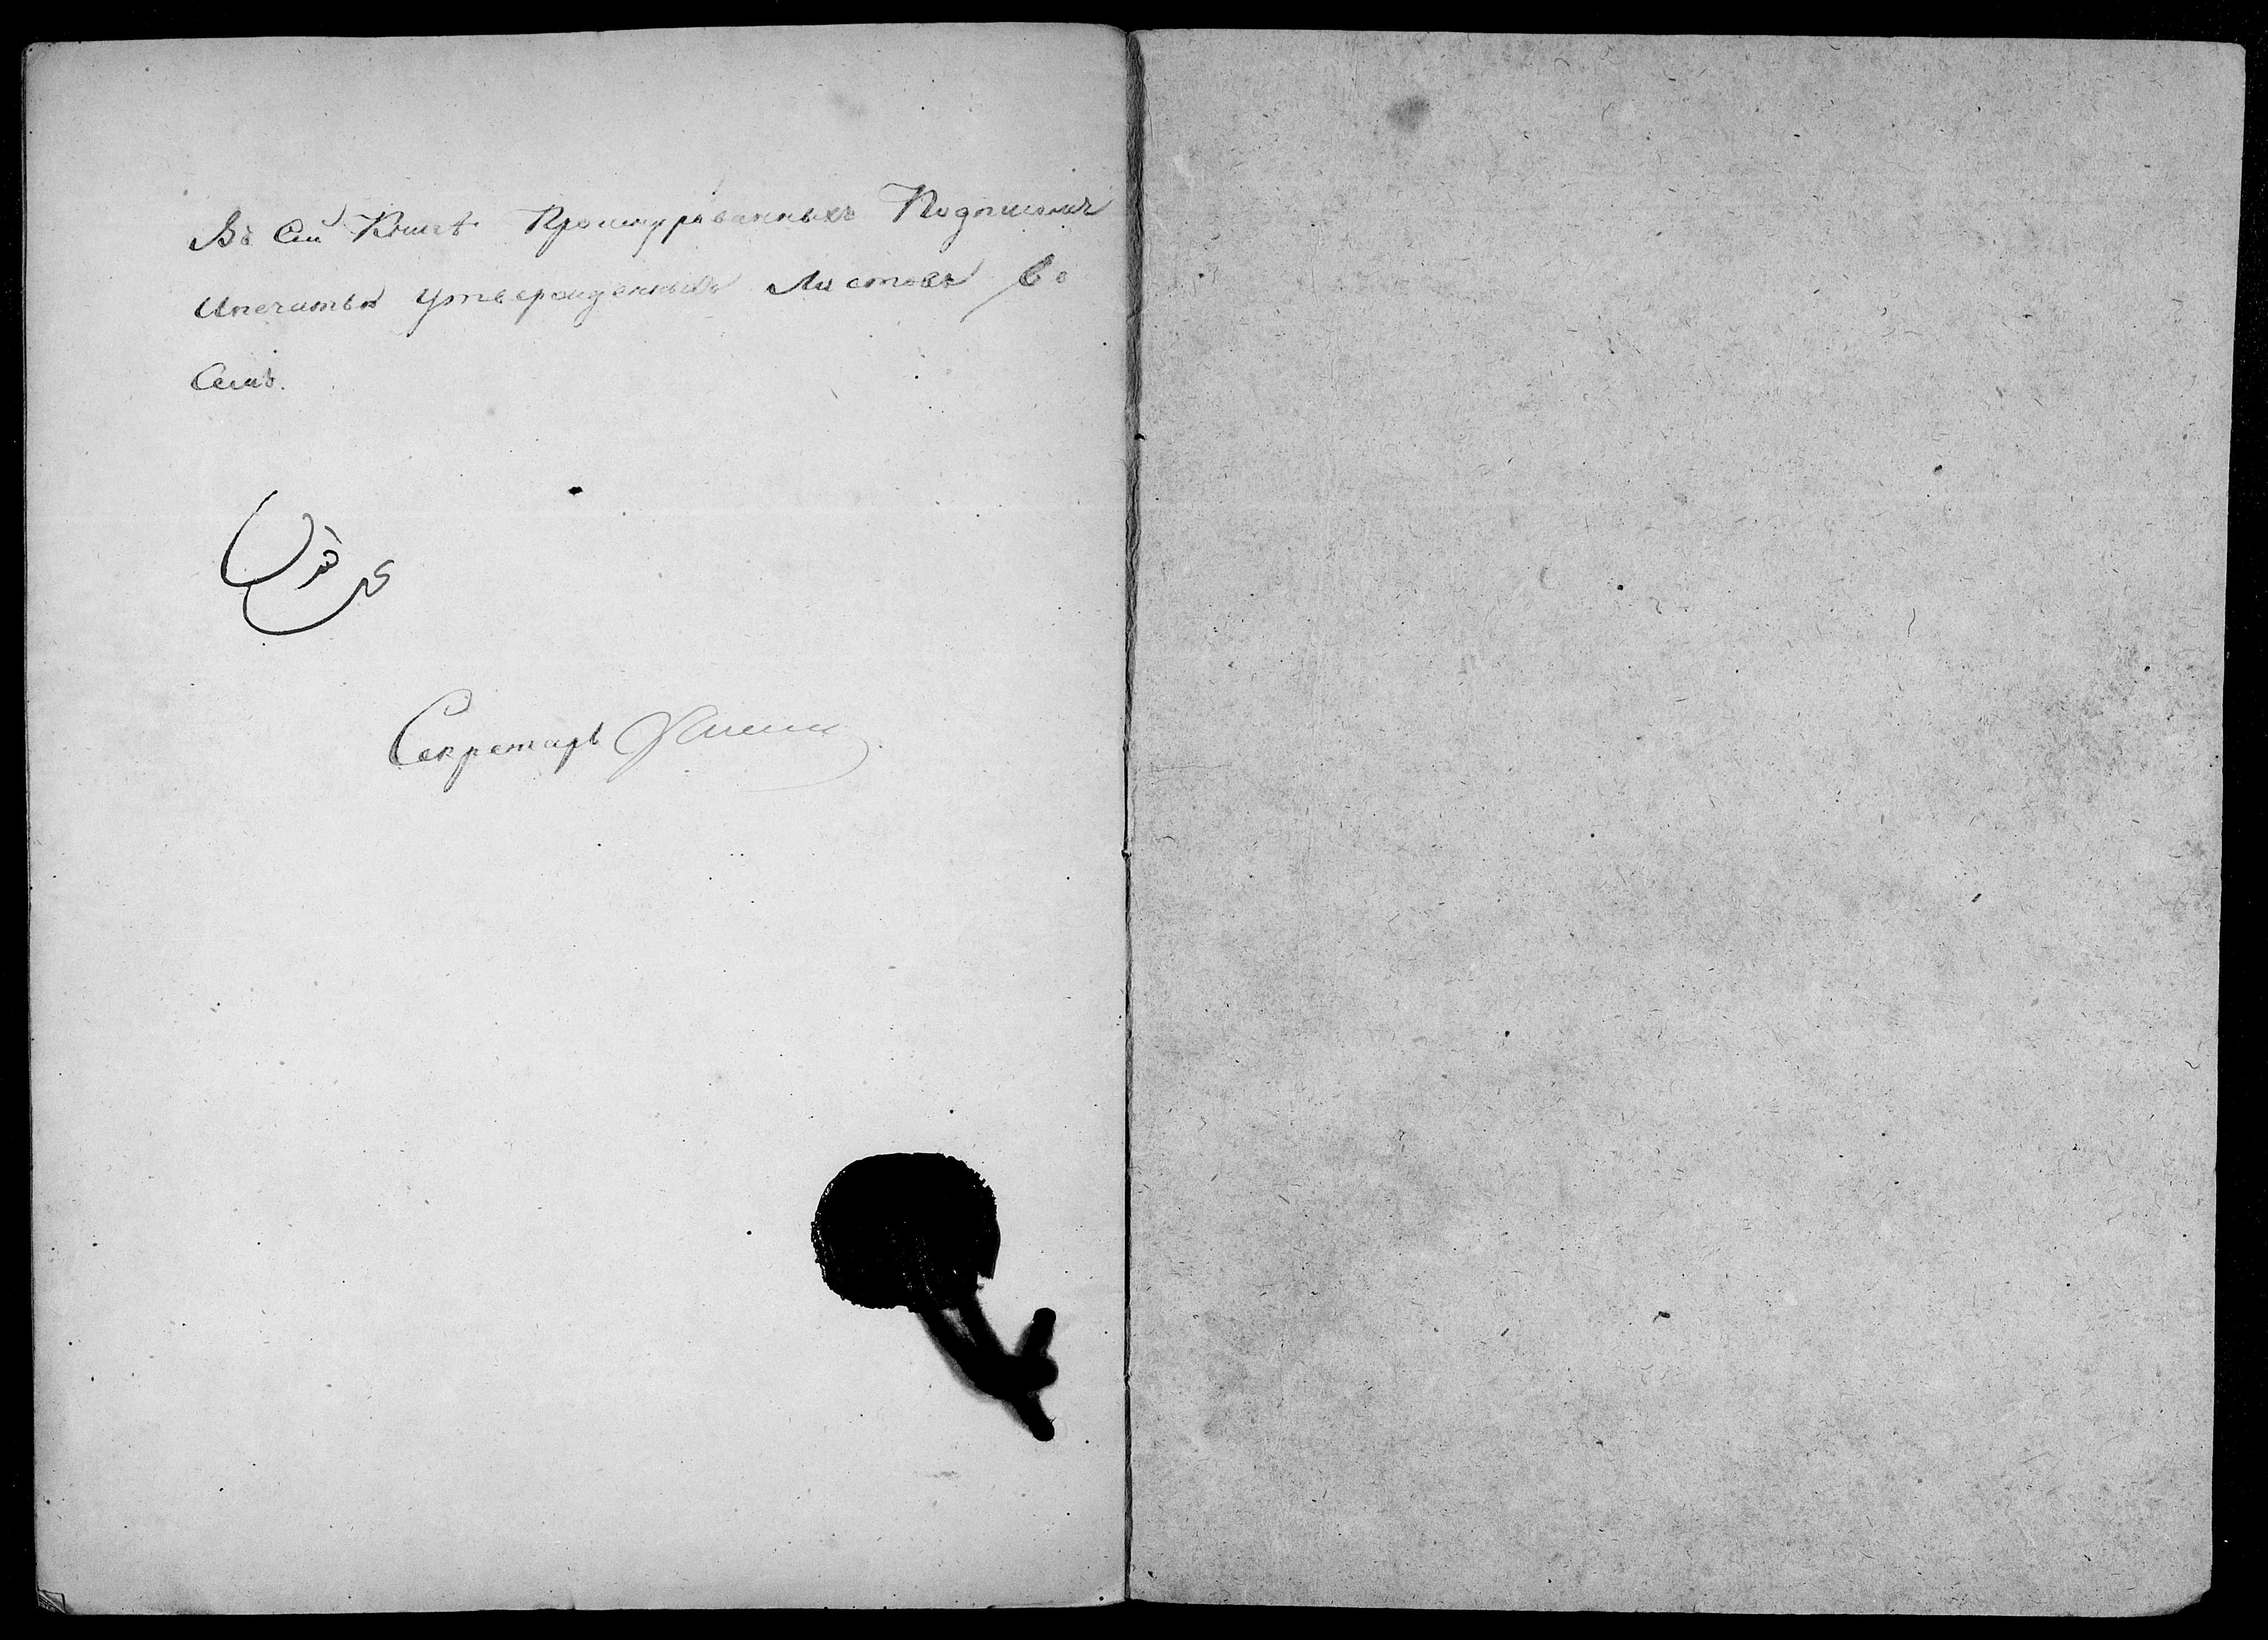 Въ Сей Книгѣ Прошнурованныхъ Подписомъ
Ипечатью Утвержденныхъ Листовъ Во
Семь.
Секретарь